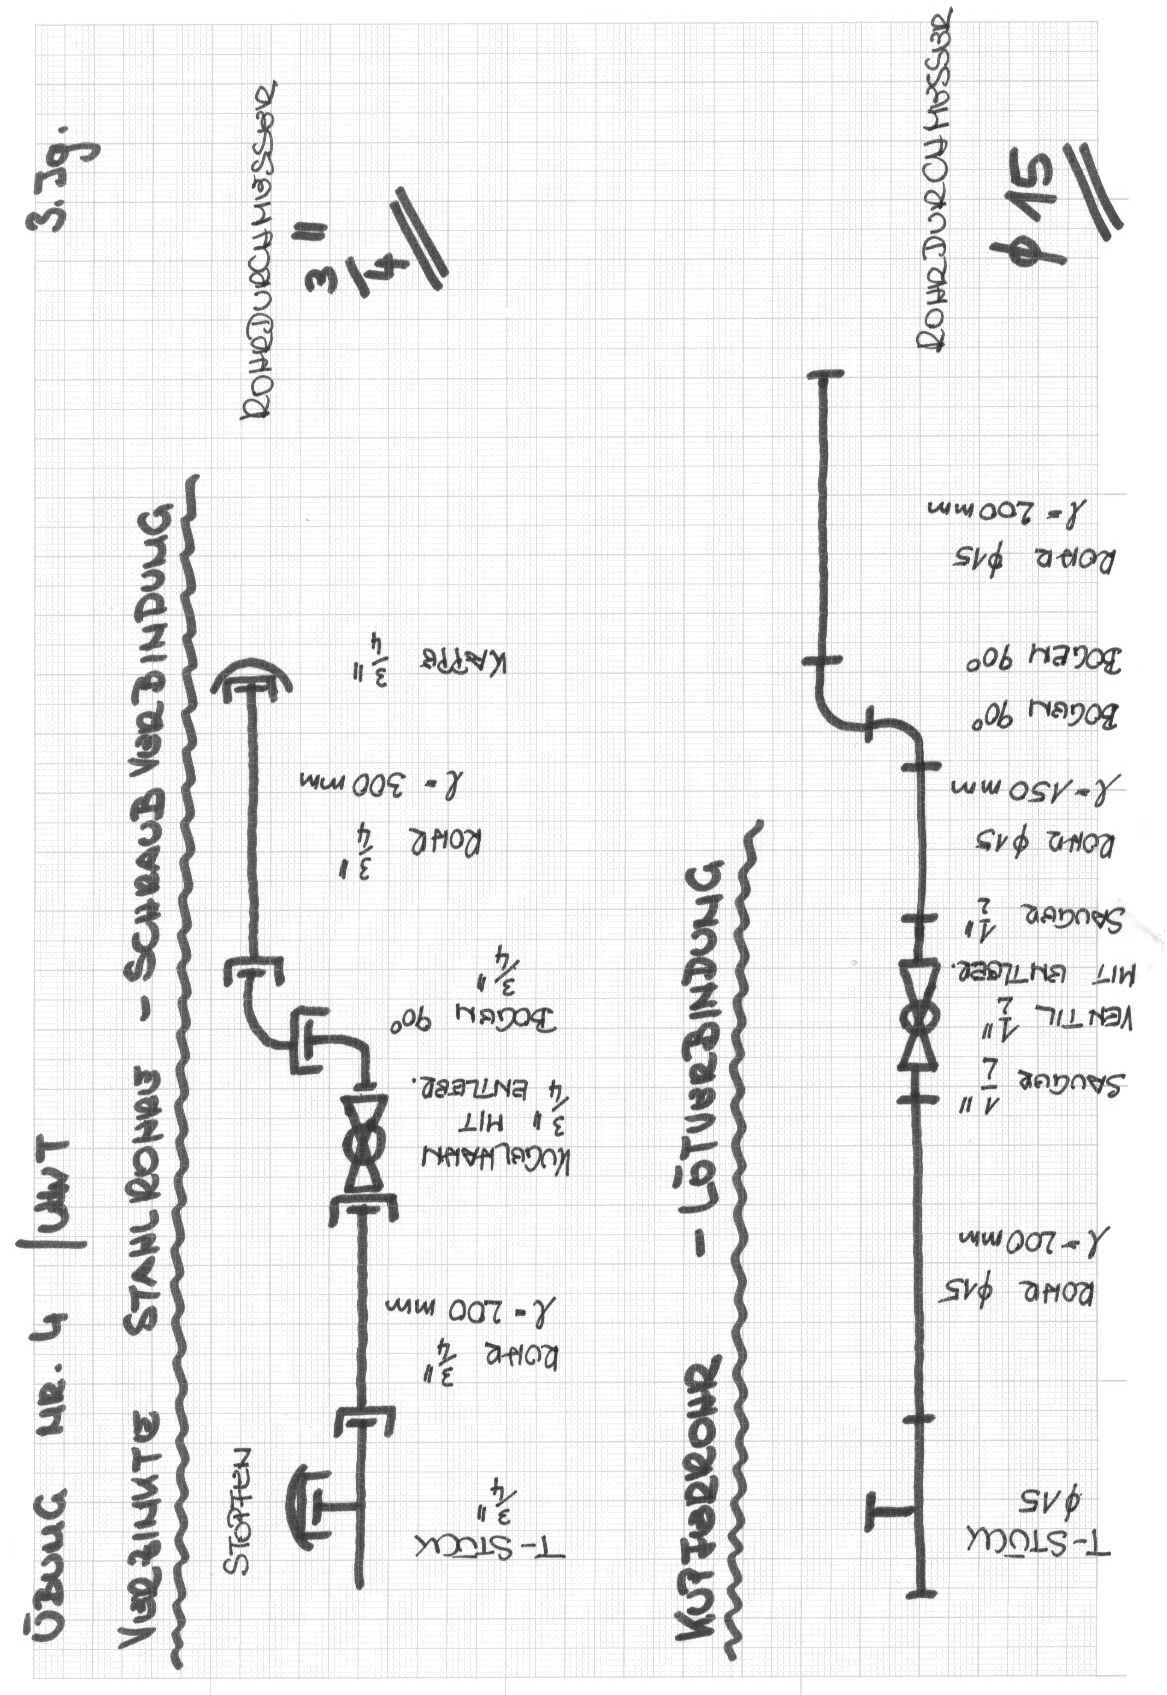 ÜBUNG NR. 4 / UWT
3. Jg.
VERZINKTE STAHLROHRE - SCHRAUBVERBINDUNG
ROHRDURCHMESSER
3/4"
STOPFEN
T-STÜCK
3/4"
ROHR 3/4"
l = 200 mm
KUGELHAHN
3/4" MIT
ENTLEER.
BOGEN 90°
3/4"
ROHR 3/4"
l = 300 mm
KAPPE
3/4"
KUPFERROHR - LÖTVERBINDUNG
ROHRDURCHMESSER
ϕ 15
T-STÜCK
ϕ15
ROHR ϕ15
l = 200 mm
SAUGER 1/2"
VENTIL 1/2"
MIT ENTLEER.
SAUGER 1/2"
ROHR ϕ15
l = 150 mm
BOGEN 90°
BOGEN 90°
ROHR ϕ15
l = 200 mm